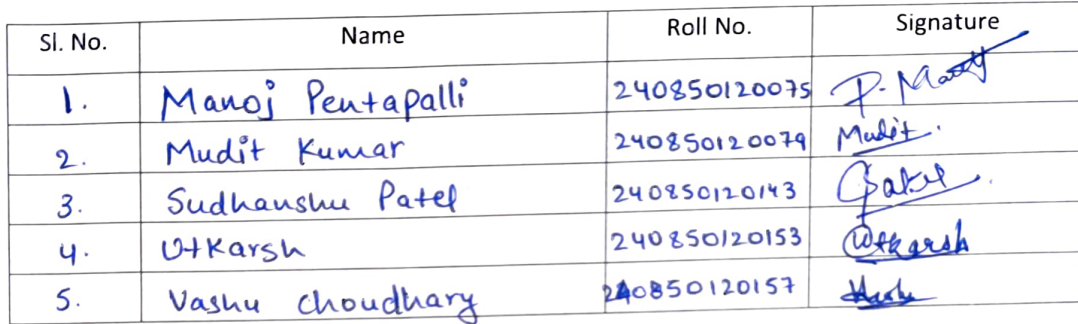 Sl. No. Name Roll No. Signature
1. Manoj Pentapalli 240850120075 P. Manoj
2. Mudit Kumar 240850120079 Mudit.
3. Sudhanshu Patel 240850120143 Patel.
4. Utkarsh 240850120153 Utkarsh
5. Vashu Choudhary 240850120157